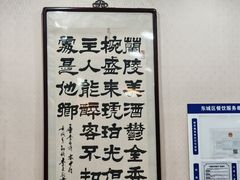 蘭陵美酒鬱金香
椀盛来琥珀光但
主人能醉客不知
處是他鄉
东城区餐饮服务